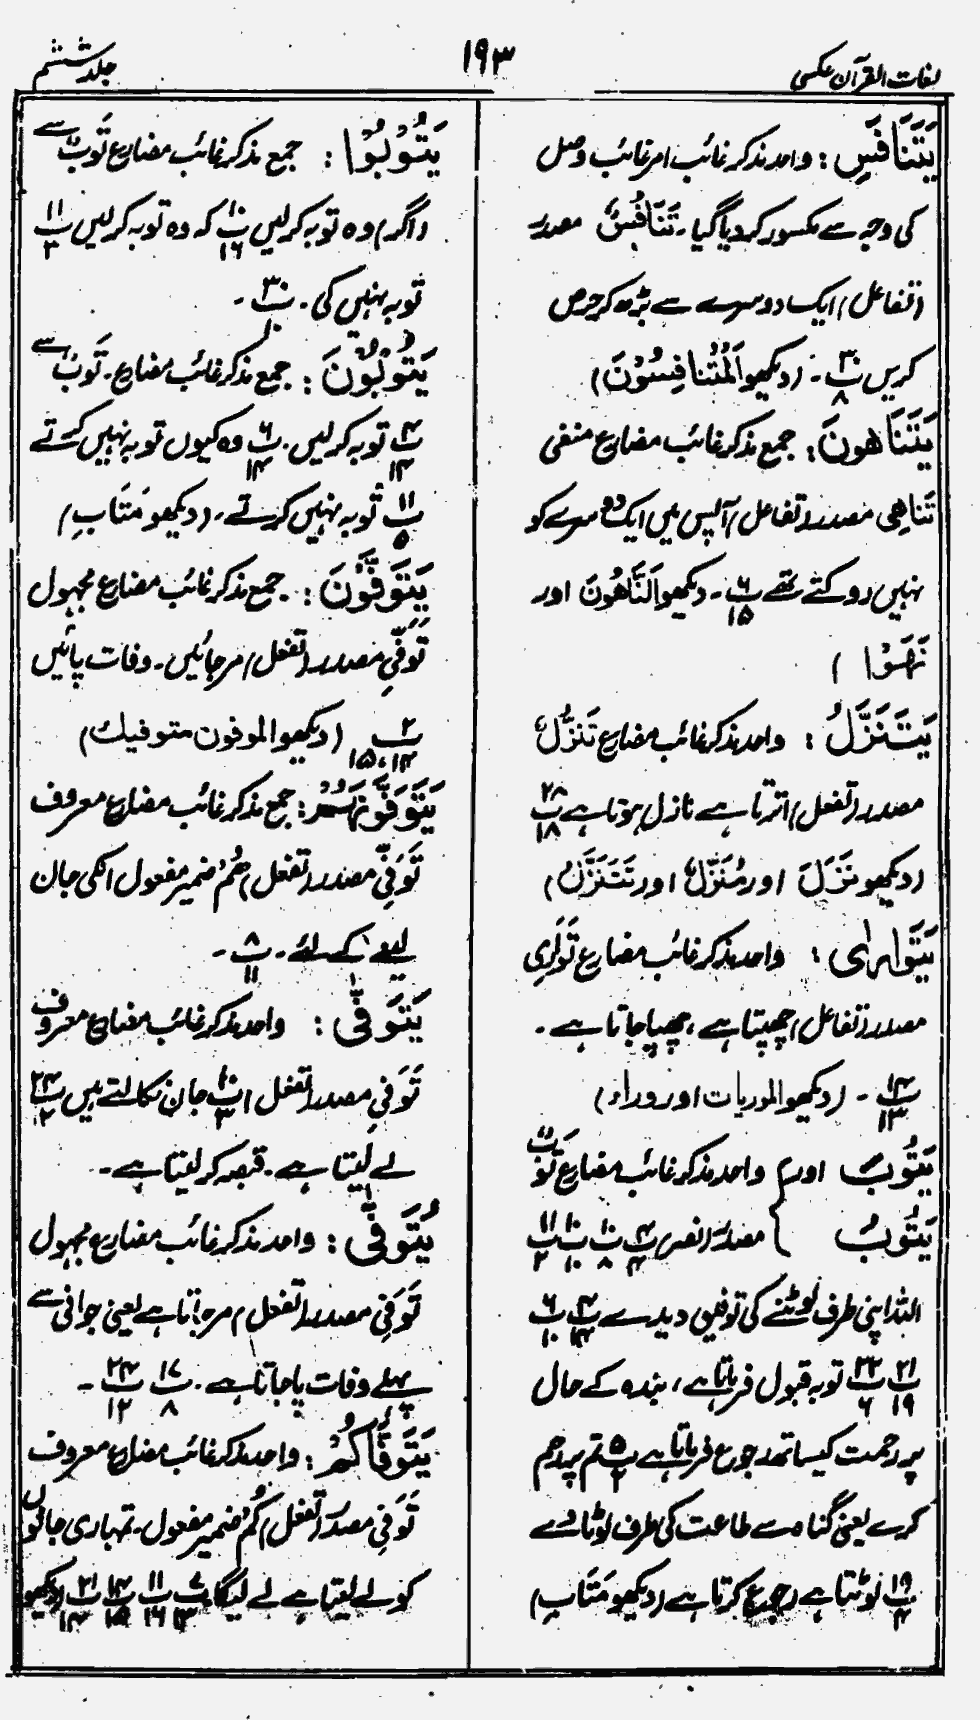 لغات القرآن عکسی
۱۹۳
جلد ششم
یَتَنَافَسِ : واحد مذکر غائب امر غائب وصل
کی وجہ سے مکسور کردیا گیا۔ تَنَافُسٌ مصدر
(تفاعل) ایک دوسرے سے بڑھ کر حرص
کریں پ۳۰ ۸ ۔ (دیکھو اَلْمُتَنَافِسُوْنَ)
یَتَنَاهَونَ : جمع مذکر غائب مضارع منفی
تَناهِی مصدر (تفاعل) آپس میں ایک دوسرے کو
نہیں روکتے تھے پ۶ ۱۵ ۔ دیکھو اَلنَّاهُونَ اور
نَهَوْا )
یَتَنَزَّلُ : واحد مذکر غائب مضارع تَنَزُّلٌ
مصدر (تفعل) اترتا ہے نازل ہوتا ہے پ۲۸ ۱۸
(دیکھو نَزَّلَ اور مُنَزِّلٌ اور تَتَنَزَّلُ)
یَتَوَارٰی : واحد مذکر غائب مضارع تَوَارِی
مصدر (تفاعل) چھپتا ہے، چھپا جاتا ہے۔
پ۱۴ ۱۳ ۔ (دیکھو الموریات اور وراء)
یَتُوْبَ اور } واحد مذکر غائب مضارع تَوْبٌ
یَتُوْبُ } مصدر (نصر) پ۴ ۴ پ۱۰ ۸ پ۱۰ ۱۰ پ۱۱ ۲
اللہ اپنی طرف لوٹنے کی توفیق دیدے پ۴ ۱۴ پ۶ ۱۰
پ۲۱ ۱۹ پ۲۲ ۶ توبہ قبول فرماتا ہے، بندہ کے حال
پر رحمت کیساتھ رجوع فرماتا ہے پ۵ ۲ تم پر رحم
کرے یعنی گناہ سے طاعت کی طرف لوٹادے
پ۱۹ ۴ لوٹتا ہے (رجوع کرتا ہے (دیکھو مَتَابِ)
یَتُوْبُوْا : جمع مذکر غائب مضارع تَوْبٌ سے
(اگر) وہ توبہ کرلیں پ۱۰ ۱۶ کہ وہ توبہ کرلیں پ۱۱ ۳
توبہ نہیں کی۔ پ۳۰ ۱۰ ۔
یَتُوْبُوْنَ : جمع مذکر غائب مضارع۔ تَوْبٌ سے
پ۴ ۱۴ توبہ کرلیں۔ پ۶ ۱۴ وہ کیوں توبہ نہیں کرتے
پ۱۱ ۵ توبہ نہیں کرتے۔ (دیکھو مَتَابِ)
یُتَوَفَّوْنَ : جمع مذکر غائب مضارع مجہول
تَوَفِّیٌ مصدر (تفعل) مرجائیں۔ وفات پائیں
پ۲ ۱۴،۱۵ (دیکھو الموفون متوفیك)
یَتَوَفَّوْنَهُمْ : جمع مذکر غائب مضارع معروف
تَوَفِّی مصدر (تفعل) هُمْ ضمیر مفعول انکی جان
لینے کے لئے۔ پ۸ ۱۱ ۔
یَتَوَفّٰی : واحد مذکر غائب مضارع معروف
تَوَفِّی مصدر (تفعل) پ۱۰ ۳ جان نکالتے ہیں پ۲۴ ۲
لے لیتا ہے۔ قبضہ کر لیتا ہے۔
یُتَوَفّٰی : واحد مذکر غائب مضارع مجہول
تَوَفِّی مصدر (تفعل) مرجاتا ہے یعنی جوانی سے
پہلے وفات پاجاتا ہے۔ پ۱۷ ۸ پ۲۴ ۱۲ ۔
یَتَوَفّٰاکُمْ : واحد مذکر غائب مضارع معروف
تَوَفِّی مصدر (تفعل) کُمْ ضمیر مفعول۔ تمہاری جانوں
کو لے لیتا ہے لے لیگا پ۷ ۱۳ پ۱۱ ۱۶ پ۱۴ ۱۵ پ۲۱ ۱۴ (دیکھو